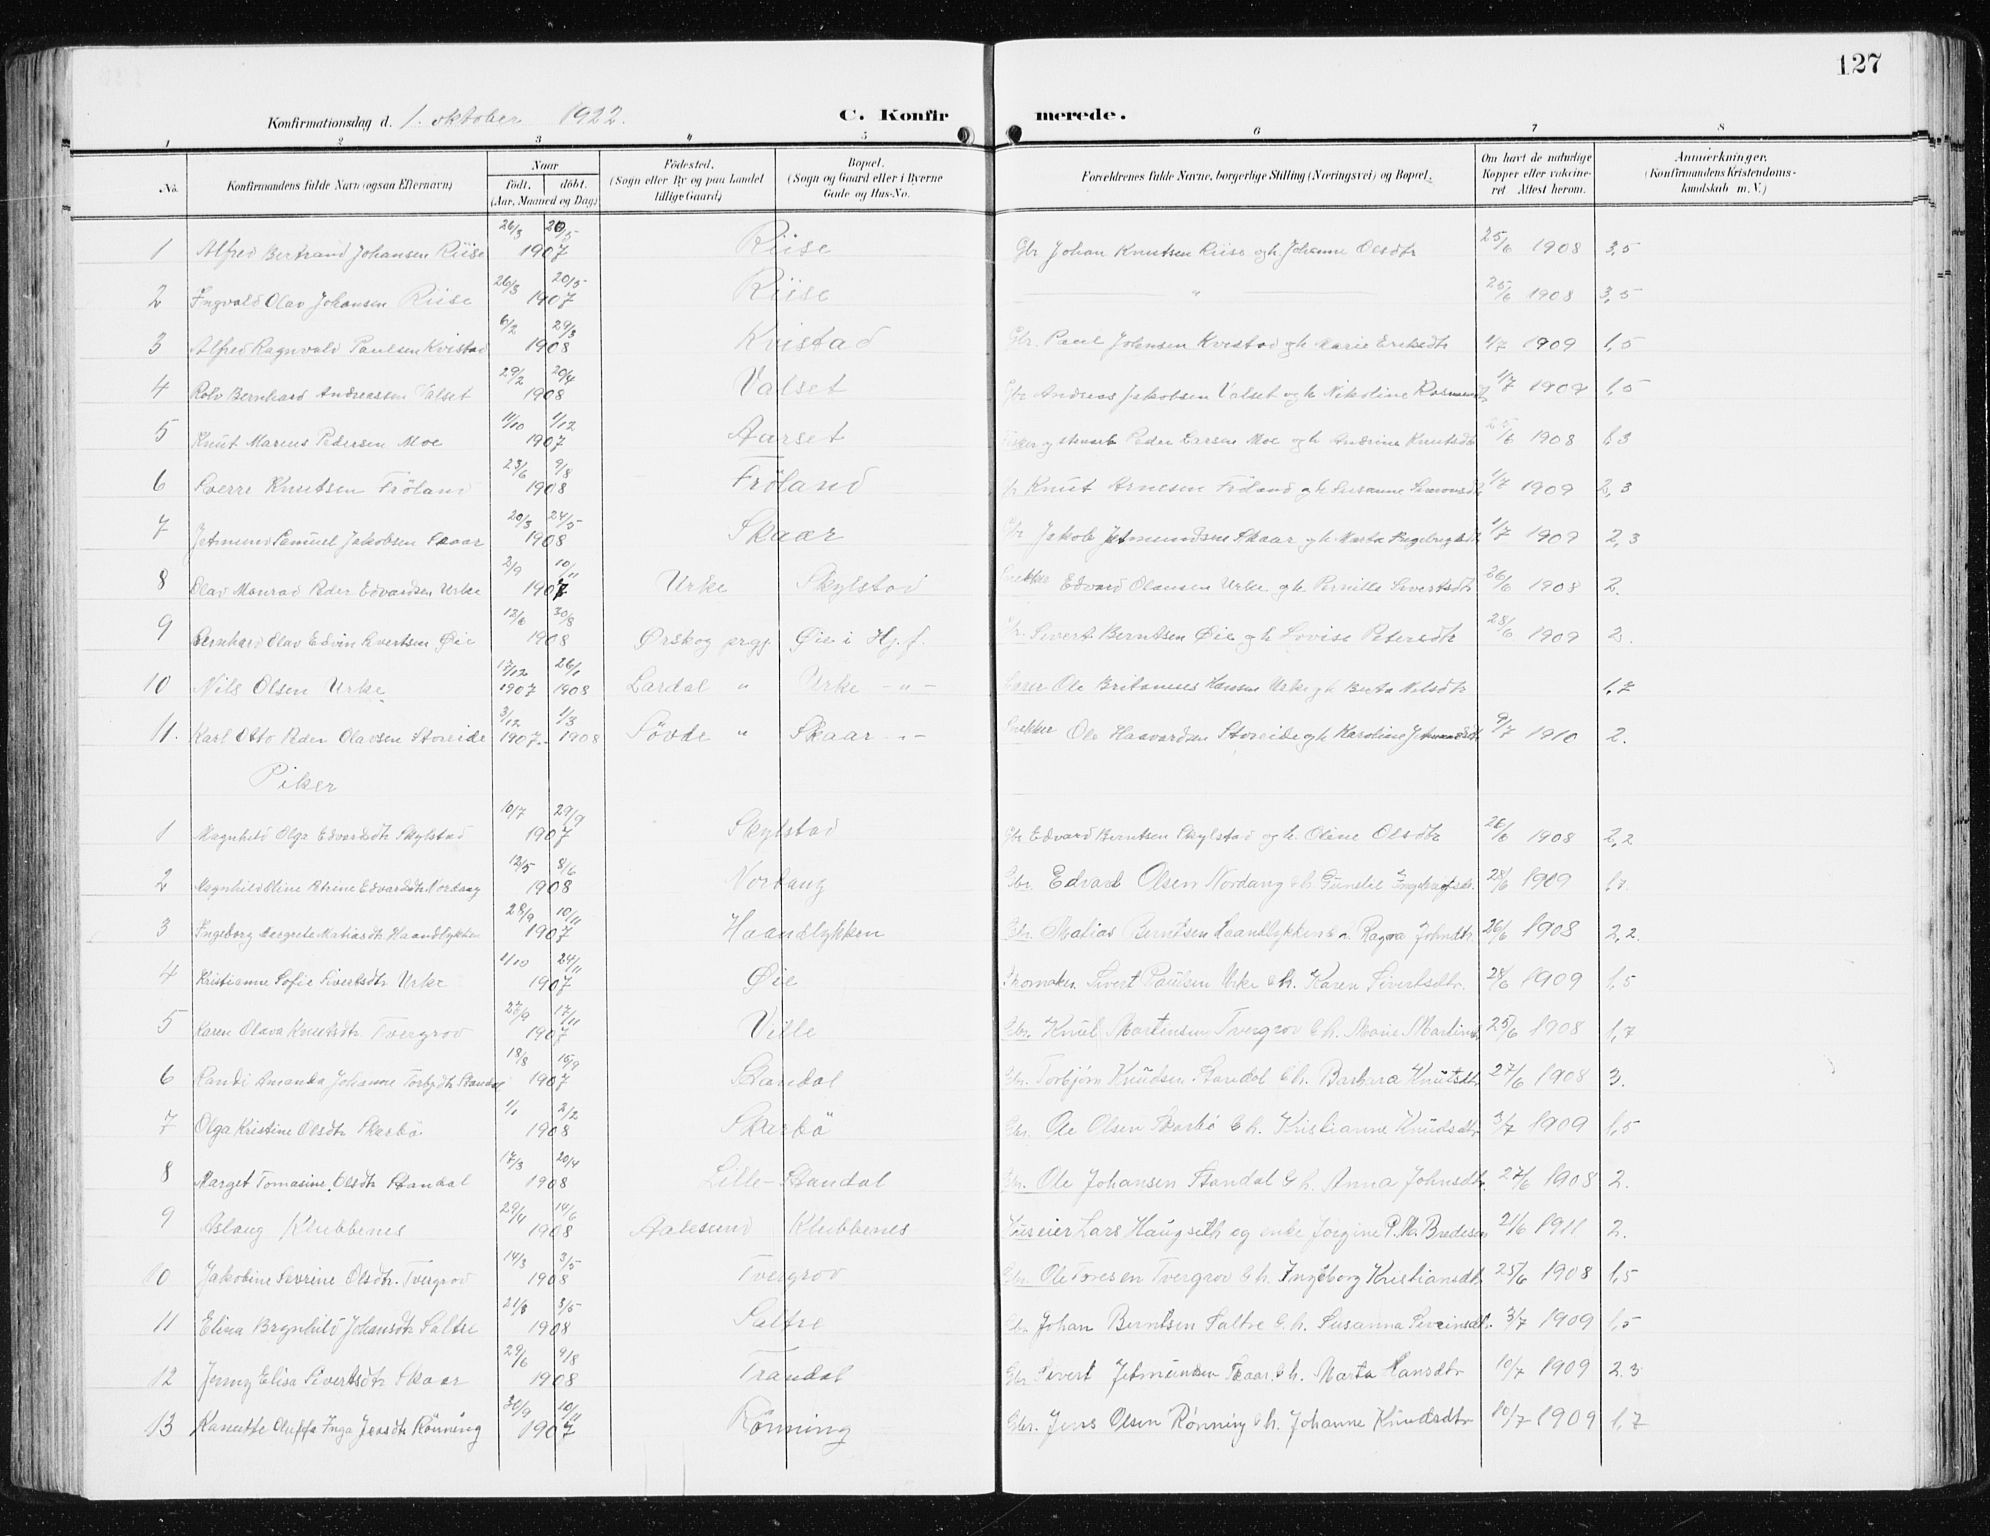 127
Konfirmationsdag d. 1. oktober 1922. C. Konfirmerede.
1 2 3 4 5 6 7 8
No. Konfirmandens fulde Navn (ogsaa Efternavn) Naar født. døbt. (Aar, Maaned og Dag) Fødested. (Sogn eller By og paa Landet tillige Gaard) Bopæl. (Sogn og Gaard eller i Byerne Gade og Hus-No. Forældrenes fulde Navne, borgerlige Stilling (Næringsvei) og Bopæl. Om havt de naturlige Kopper eller vaccineret. Attest herom. Anmærkninger. (Konfirmandens Kristendomskundskab m. V.)
1 Alfred Bertrand Johansen Riise 26/3 20/5 1907 Riise Gbr Johan Knutsen Riise og h. Johanne Olsdtr 25/6 1908 3,5
2 Ingvald Olav Johansen Riise 26/3 20/5 1907 Riise — " — 25/6 1908 3,5
3 Alfred Ragnvald Paulsen Kvistad 6/2 29/3 1908 Kvistad Gbr. Paul Johnsen Kvistad og h. Marie Eriksdtr 1/7 1909 1,5
4 Rolv Bernhard Andreassen Valset 29/2 20/4 1908 Valset Gbr Andreas Jakobsen Valset og h Nikoline 1/7 1909 1,5
5 Knut Marius Pedersen Moe 11/10 1/12 1907 Aarset Peder Larsen Moe og h Andrine Knutsdtr 25/6 1908 1,3
6 Sverre Knutsen Fröland 23/6 9/8 1908 Fröland Knut Arnesen Fröland og h Susanne Simonsdtr 1/7 1909 2,3
7 Jetmund Samuel Jakobsen Skaar 20/3 24/5 1908 Skaar Jakob Jetmundsen Skaar og h. Marta 1/7 1909 2,3
8 Olav Monrad Peder Edvardsen Urke 2/9 10/11 1907 Urke Skylstad Snekker Edvard Olausen Urke og h. Pernille Sivertsdtr 26/6 1908 2.
9 Bernhard Olav Edvin Sivertsen Øie 13/6 30/8 1908 Ørskog prgj. Øie i Hj.f. Sivert Berntsen Øie og h Lovise Petersdtr 28/6 1909 2.
10 Nils Olsen Urke 17/12 1907 26/1 1908 Lardal " Urke -"- Ole Hansen Urke og h Berta Nilsdtr 1,7
11. Karl Otto Peder Olavsen Storeide 3/12 1907. 1/3 1908 Søvde " Skaar -"- Snekker Ole Haavardsen Storeide og h Karoline 9/7 1910 2.
Piker
1 Magnhild Olga Edvardsdtr Skylstad 10/7 29/9 1907 Skylstad Gbr Edvard Berntsen Skylstad og h. Oline Olsdtr 26/6 1908 2,2
2 Magnhild Oline Petrine Edvardsdtr Nordang 12/5 8/6 1908 Nordang Gbr. Edvard Olsen Nordang & h. 28/6 1909 1,7.
3 Ingeborg Margrete Matiasdtr Haandlykken 28/9 10/11 1907 Haandlykken Gbr. Matias Berntsen Haandlykken & h. Ragna Johnsdtr. 26/6 1908 2,2.
4 Kristianne Sofie Sivertsdtr Urke 1/10 24/11 1907 Øie Skomaker. Sivert Paulsen Urke & h. Karen Sivertsdtr. 28/6 1909 1,5
5 Karen Olava Knutsdtr Tvergrov 27/9 17/11 1907 Ville Gbr. Knut Martensen Tvergrov & h. Marie Martinsdtr 25/6 1908 1,7
6 Randi Amanda Johanne Torbjdtr Standal 18/8 15/9 1907 Standal Gbr. Torbjörn Knudsen Standal & h. Barbara Knutsdtr 27/6 1908 3.
7 Olga Kristine Olsdtr Skarbö 1/1 2/2 1908 Skarbö Gbr. Ole Olsen Skarbö & h. Kristianne Knudsdtr 3/7 1909 1,5
8 Marget Tomasine Olsdtr Standal 17/3 20/4 1908 Lille-Standal Gbr. Ole Johansen Standal & h. Anna Johnsdtr. 27/6 1908 2.
9 Aslaug Klubbenes 29/4 14/6 1908 Aalesund Klubbenes Huseier Lars Haugseth og enke Jørgine P. M. Bredesen 21/6 1911 2.
10 Jakobine Severine Olsdtr. Tvergrov 14/3 3/5 1908 Tvergrov Gbr. Ole Toresen Tvergrov & h. Ingeborg Kristiansdtr 25/6 1908 1,5
11 Elina Brynhild Johansdtr Saltre 21/3 3/5 1908 Saltre Gbr Johan Berntsen Saltre & h. Susanna Severinsdtr. 3/7 1909 1,5
12 Jenny Elisa Sivertsdtr Skaar 29/6 9/8 1908 Trandal Gbr Sivert Jetmundsen Skaar & h. Marta Hansdtr 10/7 1909 2.3
13 Kanutte Inga Jensdtr Rönning 30/9 10/11 1907 Rönning Gbr. Jens Olsen Rönning & h. Johanne Knudsdtr 10/7 1909 1,7